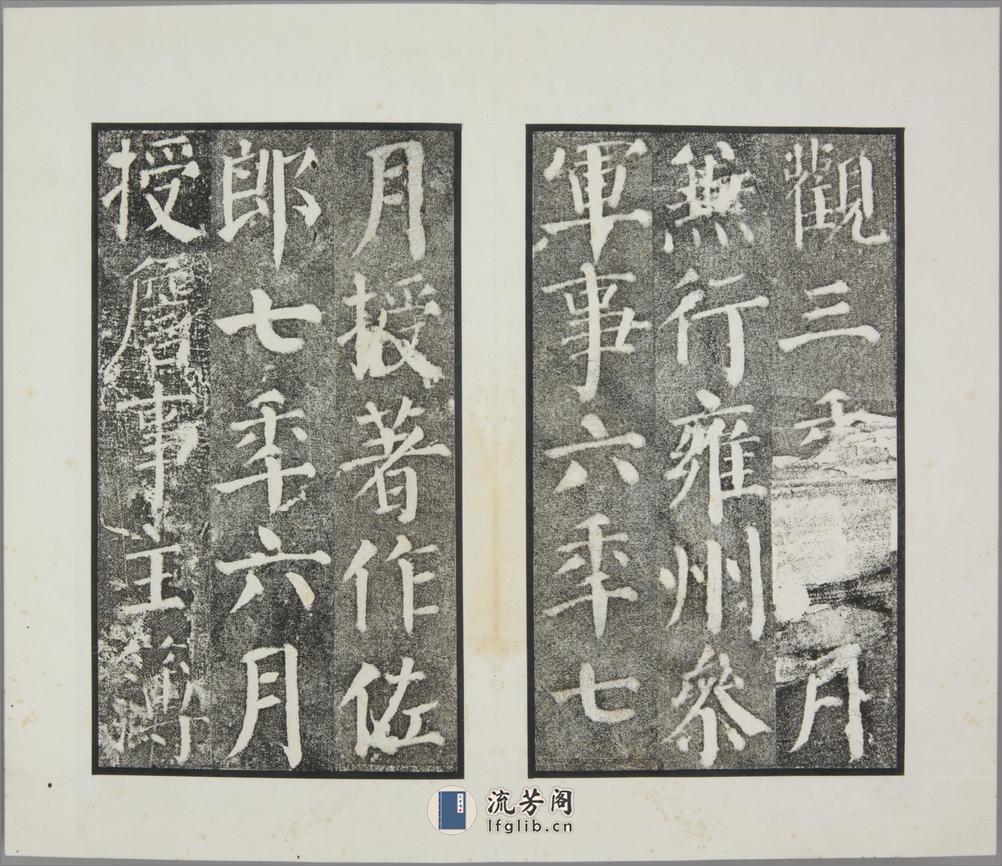 觀三年月
兼行雍州參
軍事六年七
月授著作佐
郎七年六月
授詹事主簿
流芳阁
lfglib.cn